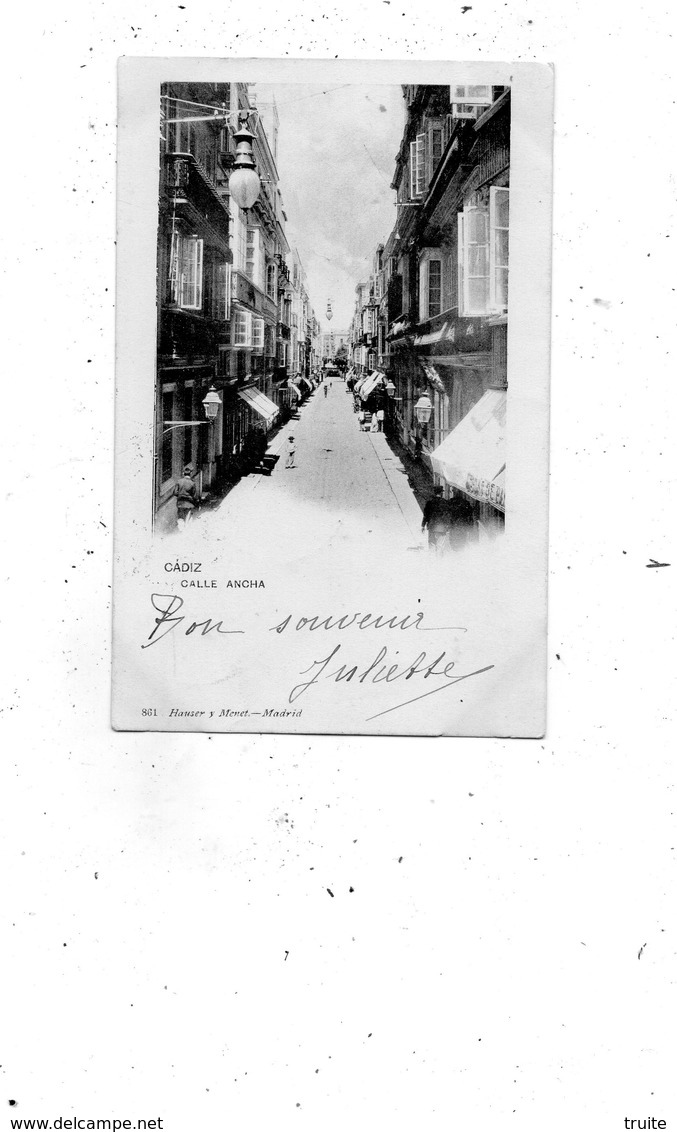 CÁDIZ
CALLE ANCHA
Bon souvenir
Juliette
861 Hauser y Menet.—Madrid
www.delcampe.net
truite